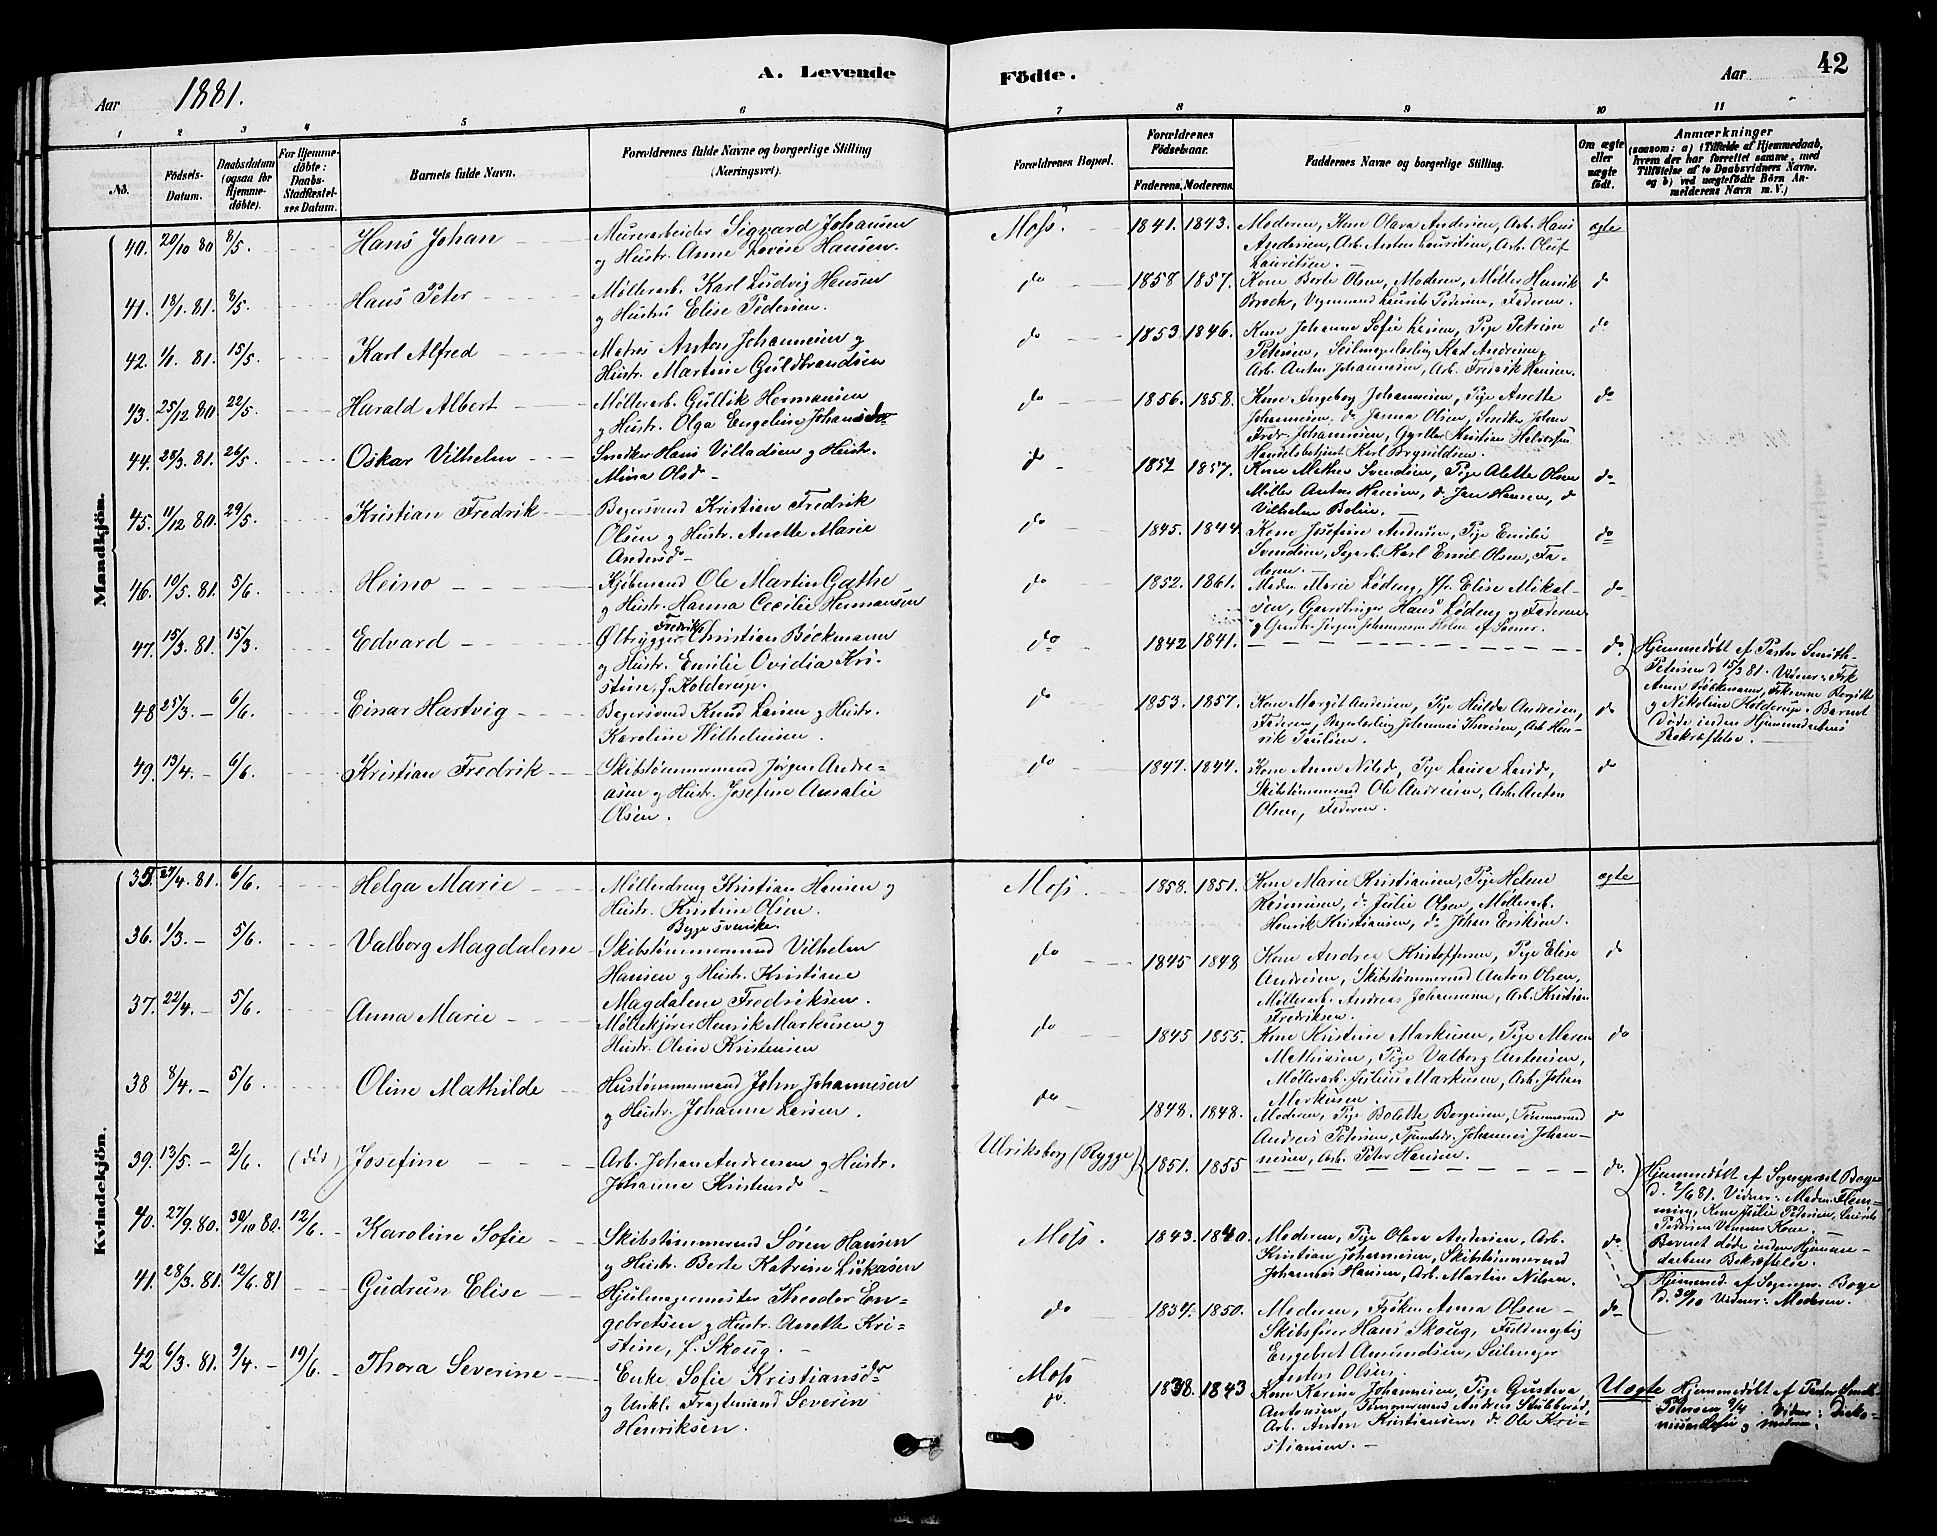 Aar 1881. A. Levende Fødte. Aar 42
1 2 3 4 5 6 7 8 9 10 11
No. Födsels-Datum. Daabsdatum (ogsaa for Hjemme-döbte). For Hjemme-döbte: Daabs-Stadfæstel-ses Datum. Barnets fulde Navn. Forældrenes fulde Navne og borgerlige Stilling (Næringsvei). Forældrenes Bopæl. Forældrenes Födselsaar. Faderens. Moderens. Faddernes Navne og borgerlige Stilling. Om ægte eller uægte födt. Anmærkninger (saasom: a) i Tilfælde af Hjemmedaab, hvem der har forrettet samme, med Tilföielse af to Daabsvidners Navne, og b) ved uægtefödte Börn An-melderens Navn m. V.)
Mandkjön.
40. 20/10 80 8/5. Hans Johan Murerarbeider Sigvard Johansen
og Hustr. Anne Lovise Hansen. Moss. 1841. 1843. Moderen, Kone Olava Andersen, Arb. Hans
Andersen, Arb. Anton Lauritsen, Arb. Oluf
Lauritsen. ægte
41. 18/1 81. 8/5. Hans Peter Møllerarb. Karl Ludvig Hansen
og Hustru Elise Pedersen. do 1858 1857. Kone Berte Olsen, Moderen, Møller Henrik
Broch, Vognmand Laurits Pedersen, Faderen. do
42. 1/1. 81. 15/5. Karl Alfred Matros Anton Johannesen og
Hustr. Martine Guldbrandsen do 1853 1846. Kone Johanne Sofie Larsen, Pige Petrine
Petersen, Seilmagerlærling Andersen,
Arb. Anton Johannesen, Arb. Fredrik Hansen. do
43. 25/12 80 22/5. Harald Albert Møllerarb. Gullik Hermansen
og Hustr. Olga Engeline Johansdr do 1856. 1858. Kone Ingeborg Johannesen, Pige Anette
Johannesen, do Janna Olsen, Snedker Johan
Fredr. Johannesen, Gjørtler Kristian
Handelsbetjent Karl Brynildsen. do
44. 28/3 81. 26/5. Oskar Vilhelm Snedker Hans Villadsen og Hustr.
Mina Olsd do 1852 1857. Kone Mathea Svendsen, Pige Alette Olsen
Møller Anton Hansen, do Jan Hansen, do
Vilhelm Bolin. do
45. 11/12 80. 29/5. Kristian Fredrik Bagersvend Kristian Fredrik
Olsen og Hustr. Anette Marie
Andersd do 1845. 1844. Kone Josefine Andersen, Pige Emilie
Svendsen, Karl Emil Olsen, Fa-
deren. do
46. 10/5. 81. 5/6. Heino Kjøbmand Ole Martin Gathe
og Hustr. Hanna Cecilie Hermansen do 1852. 1861. Madm. Marie Lødeng, Jfr. Elise Mikal-
sen, Gaardbruger Hans Lødeng og Faderen
og Jørgen Johannesen Holm af Sooner. do
47. 15/3. 81. 15/3. Edvard Ølbrygger Fredrik Christian Böckmann
og Hustr. Emilie Ovidia Kri-
stine, f. Holderup. do 1842 1841. do. Hjemmedøbt af Pastor Smith-
Petersen d 15/3 81. Vidner: Frk
Anna Bøckmann, Frknerne Bergitte
og Nikoline Holderup. Barnet
døde inden Hjemmedaabens
Bekræftelse.
48 25/3. — 6/6. Einar Hartvig Bagersvend Knud Larsen og Hustr.
Karoline Wilhelmsen. do 1853. 1857. Kone Margit Andersen, Pige Hulda Andersen,
Faderen, Bagerlærling Johannes Iversen, Arb. Hen-
rik Paulsen. do
49. 13/4. — 6/6. Kristian Fredrik Skibstømmermand Jørgen Andre-
asen og Hustr. Josefine Amalie
Olsen. do 1847. 1844. Kone Anne Nilsd, Pige Laura Larsd,
Skibstømmermand Ole Andersen, Arb. Anton
Olsen, Faderen. do
Kvindekjön.
35. 27/4. 81. 6/6. Helga Marie Møllerdreng Kristian Hansen og
Hustr. Kristine Olsen. Moss. 1858. 1851. Kone Marie Kristiansen, Pige Helene
Rasmusen, do Julie Olsen, Møllerarb.
Henrik Kristiansen, do Johan Eriksen. ægte
36. 1/3. — 5/6. Valborg Magdalene Skibstømmermand Vilhelm
Hansen og Hustr. Kristiane
Magdalene Fredriksen. do 1845 1848 Kone Andrea Kristoffersen, Pige Elise
Andersen, Skibstømmermd Anton Olsen,
Møllerarb. Andreas Johannesen, Arb. Kristian
Fredriksen. do
37. 22/4. — 5/6. Anna Marie Møllekjører Henrik Markusen og
Hustr. Oline Kristensen do 1845 1855. Kone Kristine Markusen, Pige Maren
Mathiasen, Pige Valborg Antonsen,
Møllerarb. Julius Markusen, Arb. Johan
Markusen. do
38 8/4. — 5/6 Oline Mathilde Hustømmermand John Johannesen
og Hustr. Johanne Larsen. do 1848. 1848. Moderen, Pige Bolette Borgersen, Tømmermd
Andreas Petersen, Johannes Johan-
nesen, Arb. Peter Hansen. do
39. 13/5. — 2/6. (död) Josefine Arb. Johan Andreasen og Hustr.
Johanne Kristensd Ulriksborg (Rygge) 1851. 1855 do. Hjemmedøbt af Sogneprest Boge
d. 2/6 81. Vidner: Madm. Flem-
ming, Kone Julie Pedersen, Laurits
Pedersen Kone.
Barnet døde inden Hjemme-
daabens Bekræftelse.
40. 27/9. 80. 30/10 80. 12/6. Karoline Sofie Skibstømmermd Søren Hansen
og Hustr. Berte Katrine Lukasen Moss. 1843. 1840. Moderen, Pige Olava Andersen, Arb.
Kristian Johannesen, Skibstømmermd
Johannes Hansen, Arb. Martin Nilsen. do. Hjemmed. af Sognepr. Boge
d. 30/10 Vidner: Moderen.
41. 28/3. 81. 12/6. 81 Gudrun Elise Hjulmagermester Theodor En-
gebretsen og Hustr. Anette Kri-
stine, f. Skoug. do 1834. 1850. Moderen, Frøken Anna Olsen
Skibsfører Hans Skoug, Fuldmægtig
Engebret Amundsen, Seilmager
Anders Olsen. do
42 6/3. 81. 9/4. — 19/6. Thora Severine Enke Sofie Kristiansdr
og Unkl. Fragtemand Severin
Henriksen. Moss
do. 1838. 1843 Kone Karine Johannesen, Pige Gustava
Antonsen, Tømmermand Andreas Stubberød,
Arb. Anton Kristiansen, do Ole Kri-
stiansen. Uægte Hjemmedøbt af Pastor Smith-
Petersen 9/4. Vidner: Diako-
nisse Sofie og moderen.